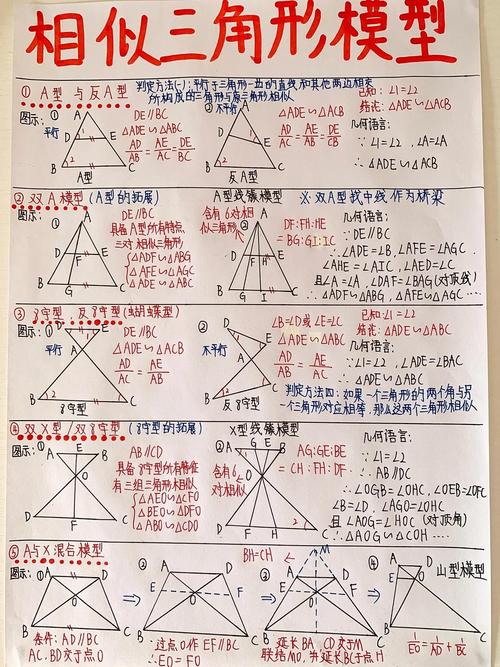 相似三角形模型
① A型 与 反A型
判定方法(一):平行于三角形一边的直线和其他两边相交
所构成的三角形与原三角形相似
已知:∠1=∠2
结论:△ADE∽△ACB
图示:①
平行
A
D
E
1
2
B
C
A型
DE∥BC
△ADE∽△ABC
AD/AB=AE/AC=DE/BC
②
不平行
A
D
E
1
2
B
C
反A型
△ADE∽△ACB
AD/AC=AE/AB=DE/BC
几何语言:
∵∠1=∠2, ∠A=∠A
∴△ADE∽△ACB
② 双A模型(A型的拓展)
A型线簇模型
※ 双A型找中线作为桥梁
图示:①
A
D
F
E
B
G
C
DE∥BC
具备A型所有特点
三对相似三角形
△ADF∽△ABG
△AFE∽△AGC
△ADE∽△ABC
含有6对相
似三角形
②
A
D
F
H
E
B
G
I
C
DF:FH:HE
=BG:GI:IC
几何语言:
∵DE∥BC
∴∠ADE=∠B, ∠AFE=∠AGC,
∠AHE=∠AIC, ∠AED=∠C
且∠A=∠A, ∠DAF=∠BAG(对顶线)
∴△ADF∽△ABG, △AFE∽△AGC....
③ 8字型, 反8字型(蝴蝶型)
图示:①
平行
D
E
A
B
C
8字型
DE∥BC
△ADE∽△ACB
AD/AC=AE/AB
②
不平行
D
E
A
B
C
反8字型
∠B=∠D或∠E=∠C
△ADE∽△ABC
AD/AB=AE/AC
已知:∠1=∠2
结论:△ADE∽△ABC
几何语言:
∵∠1=∠2, ∠ADE=∠BAC
∴△ADE∽△ABC
判定方法四:如果一个三角形的两个角与另
一个三角形对应相等,那么这两个三角形相似
④ 双X型/双8字型(8字型的拓展)
X型线簇模型
图示:①
A
E
B
O
D
F
C
AB∥CD
具备8字型所有特征
有三组三角形相似
△AEO∽△CFO
△BEO∽△DFO
△ABO∽△CDO
②
A
G
E
B
O
D
F
H
C
含有6
对相似
AG:GE:BE
=CH:FH:DF
几何语言:
∵∠1=∠2
∴AB∥DC
∴∠OGB=∠OHC, ∠OEB=∠OFC
∠B=∠D, ∠AGO=∠OHC
且∠AOG=∠HOC(对顶角)
∴△AOG∽△COH....
⑤ A与X混合模型
图示:①
A
D
O
B
C
条件:AD∥BC
AC, BD交于点O
②
A
D
E
O
F
B
C
过点O作EF∥BC
∴EO=FO
BH=CH
③
M
A
D
E
F
B
H
C
延长BA, CD交于M
联结MO,并延长BC于点H
④
A
D
E
O
B
C
山型模型
1/EO=1/AD+1/BC